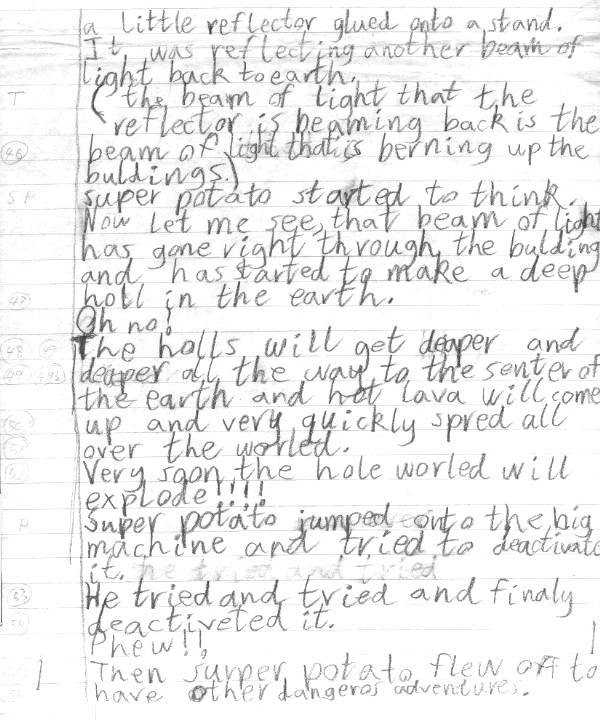 a little reflector glued onto a stand.
It was reflecting another beam of
light back to earth.
T (the beam of light that the
reflector is beaming back is the
46 beam of light that is berning up the
buldings.)
SP super potato started to think.
Now let me see, that beam of light
has gone right through the bulding
and has started to make a deep
47 holl in the earth.
Oh no!
48 The holls will get deaper and
49 deaper all the way to the senter of
the earth and hot lava will come
50 up and very quickly spred all
51 over the worled.
52 Very soon the hole worled will
explode!!!!
P super potato jumped onto the big
machine and tried to deactivate
it. he tried and tried
53 He tried and tried and finaly
54 deactiveted it.
Phew!!
Then surper potato flew off to
have other dangeros adventures.